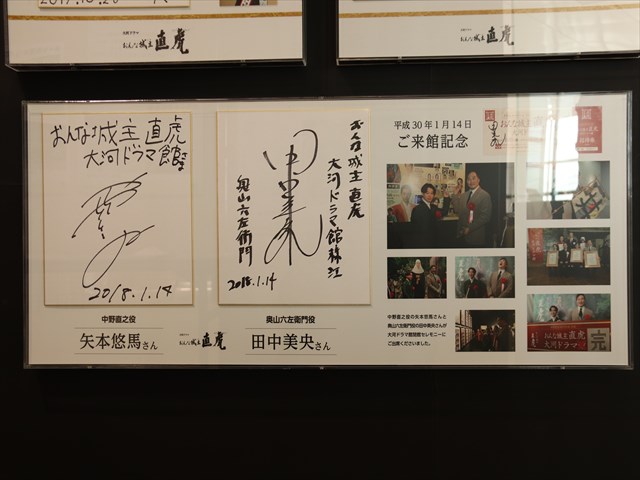 2017.10.20
おんな城主 直虎
おんな城主 直虎
おんな城主 直虎
大河ドラマ館さま
2018.1.14
中野直之役
矢本悠馬さん
おんな城主 直虎
おんな城主 直虎
大河ドラマ館様江
奥山六左衛門
2018.1.14
奥山六左衛門役
田中美央さん
平成30年1月14日
ご来館記念
中野直之役の矢本悠馬さんと
奥山六左衛門役の田中美央さんが
大河ドラマ館閉館セレモニーに
ご出席くださいました。
おんな城主 直虎
大河ドラマ
完